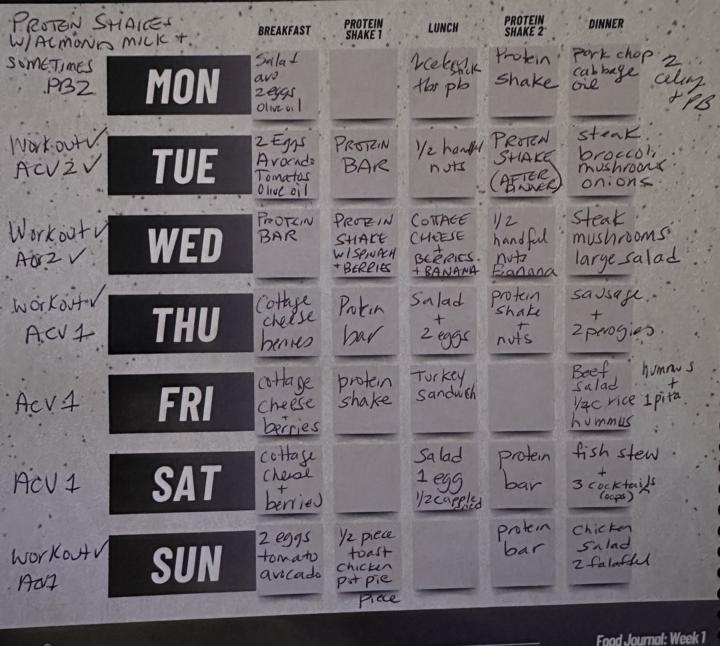 PROTEIN SHAKES
W/ALMOND MILK +
SOMETIMES
PB2
BREAKFAST
PROTEIN SHAKE 1
LUNCH
PROTEIN SHAKE 2
DINNER
MON
Salad
avo
2 eggs
olive oil
2 celery
stick
tbs pb
Protein
shake
Pork chop
cabbage
oil
2
celery
+ PB
Workout ✓
ACV 2 ✓
TUE
2 Eggs
Avocado
Tomatos
Olive oil
PROTEIN
BAR
1/2 handful
nuts
PROTEIN
SHAKE
(AFTER
DINNER)
steak
broccoli
mushrooms
onions
Workout ✓
2 ✓
WED
PROTEIN
BAR
PROTEIN
SHAKE
W/SPINACH
+ BERRIES
COTTAGE
CHEESE
+
BERRIES
+ BANANA
1/2
handful
nuts
Banana
Steak
mushrooms
large salad
Workout ✓
ACV 1
THU
Cottage
cheese
berries
Protein
bar
Salad
+
2 eggs
protein
shake
+
nuts
sausage
+
2 perogies
ACV 1
FRI
cottage
cheese
+
berries
protein
shake
Turkey
sandwich
Beef
salad
1/4c rice
hummus
hummus
+
1 pita
ACV 1
SAT
cottage
cheese
+
berries
Salad
1 egg
1/2 c apple
protein
bar
fish stew
+
3 cocktails
(oops)
Workout ✓
SUN
2 eggs
tomato
avocado
1/2 piece
toast
chicken
pot pie
piece
protein
bar
Chicken
salad
2 falaffel
Food Journal: Week 1